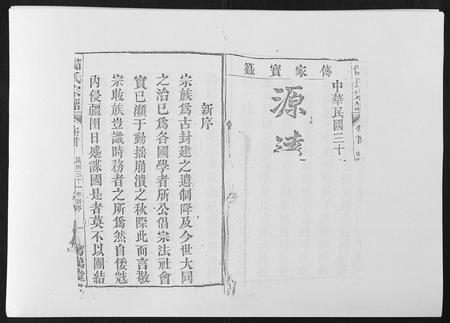 中華民國三十
傳家寶錄
源
新序
宗族爲古封建之遺制降及今世大同
之治已爲各國學者所公倡宗法社會
實已瀕于動搖崩潰之秋際此而言敬
宗收族豈識時務者之所爲然自倭寇
內侵疆圉日蹙謀國是者莫不以團結
氏宗譜
卷首